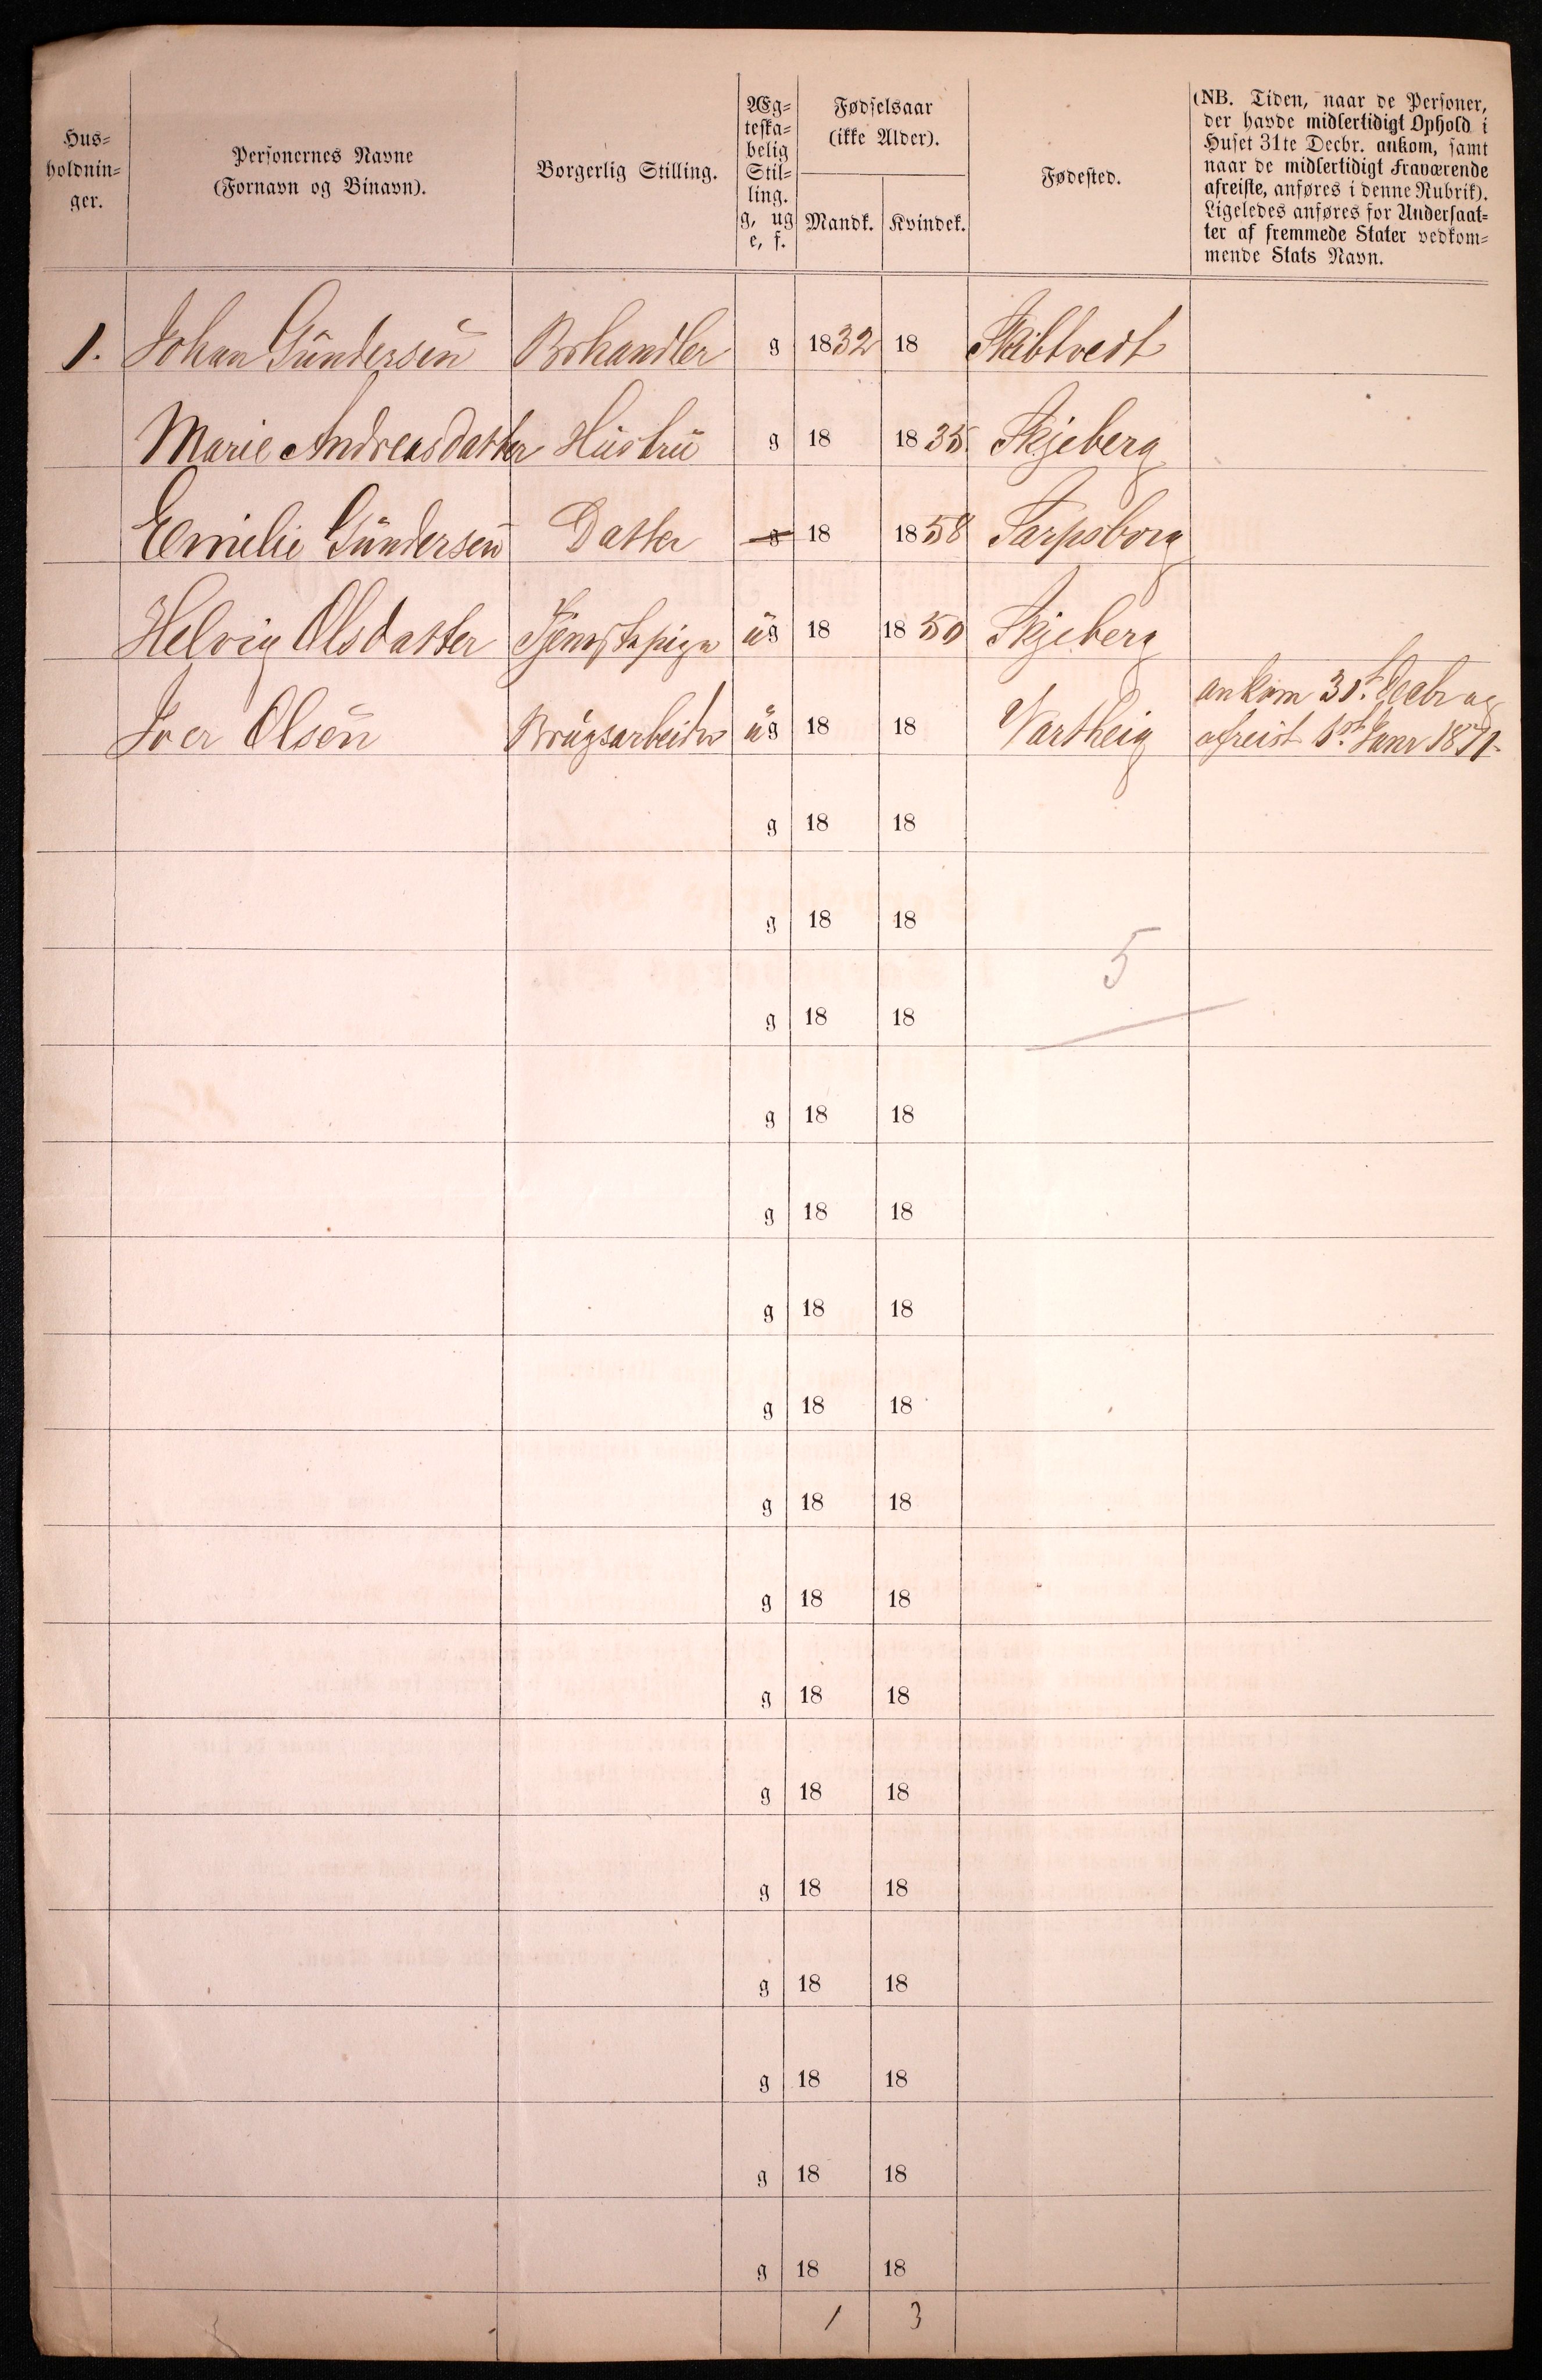 Hus=
holdnin=
ger.
Personernes Navne
(Fornavn og Binavn).
Borgerlig Stilling.
Æg=
teska=
belig
Stil=
ling.
g, ug
e, f.
Fødselsaar
(ikke Alder).
Mandk. Kvindek.
Fødested.
(NB. Tiden, naar de Personer,
der havde midlertidigt Ophold i
Huset 31te Decbr. ankom, samt
naar de midlertidigt Fraværende
afreiste, anføres i denne Rubrik).
Ligeledes anføres for Undersaat=
ter af fremmede Stater vedkom=
mende Stats Navn.
1. Johan Gundersen Brhandler g 1832 18 Skibtvedt
Marie Andreasdatter Hustru g 18 1835 Skjeberg
Emelie Gundersen Datter g 18 1858 Sarpsborg
Helvig Olsdatter Tjenstepige ug 18 1850 Skjeberg
Iver Olsen Brugsarbeider ug 18 18 Vartheig ankom 31. Decbr og
afreist 1st Janr 1871.
g 18 18
g 18 18
5
g 18 18
g 18 18
g 18 18
g 18 18
g 18 18
g 18 18
g 18 18
g 18 18
g 18 18
g 18 18
g 18 18
g 18 18
g 18 18
g 18 18
1 3